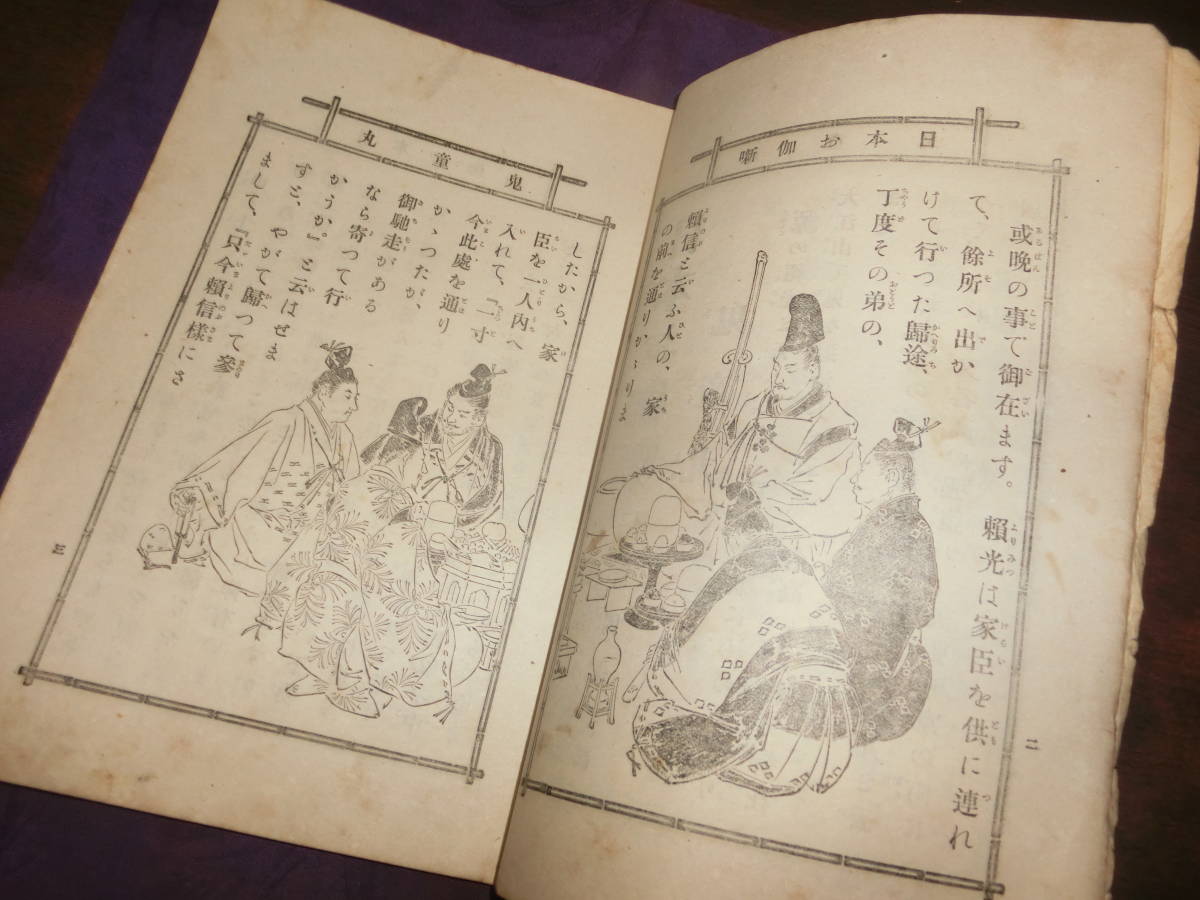 日本お伽噺
或晩の事で御在ます。頼光は家臣を供に連れ
て、餘所へ出か
けて行つた歸途、
丁度その弟の、
頼信と云ふ人の、家
の前を通りかゝりま
二
鬼童丸
したから、家
臣を一人内へ
入れて、『一寸
今此處を通り
かゝつたが、
御馳走がある
なら寄つて行
かうか。』と云はせま
すと、やがて歸つて參
まして、『只今頼信樣にさ
三